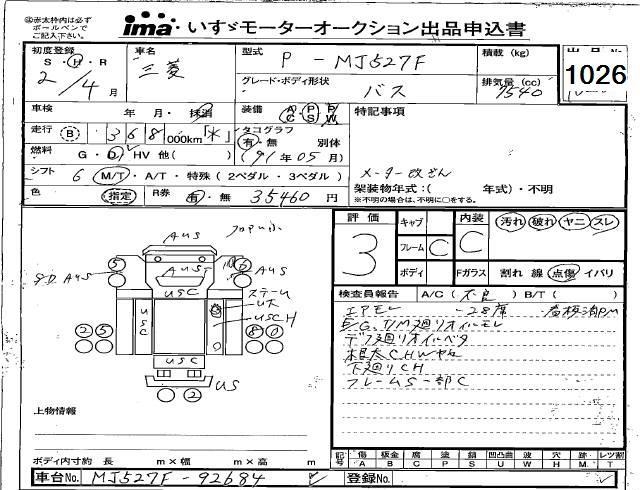 ㊟赤太枠内は必ず
ボールペンで
ご記入下さい。
ima いすゞモーターオークション出品申込書
初度登録 S・H・R 2/4月
車名 三菱
型式 P - MJ527F
積載 (kg)
1026
グレード・ボディ形状 バス
排気量 (cc)
車検 年・月・抹消
装備 A/C P/S P/W
特記事項
走行 B 368,000km「水」
タコグラフ 有・無 別体
燃料 G・D・HV 他( )
(91年05月)
シフト 6 M/T・A/T・特殊(2ペダル・3ペダル)
メーター改ざん
架装物年式:( 年式)・不明
※不明の場合は、不明に○をする。
色 指定 R券 有・無 35460円
評価 3
キャブ
フレーム C
ボディ
内装 C
汚れ 破れ ヤニ スレ
Fガラス 割れ 線 点傷 イバリ
検査員報告 A/C(不良) B/T( )
エアモレ -28席
E/G、T/M廻りオイルモレ
デフ廻りオイルベタ
下廻りCH
フレームS一部C
AUS
AUS
AUS
USC
USC
USCH
USC
US
上物情報
ボディ内寸約 長 m×幅 m×高 m
記号 傷A 板金B 腐C 塗P 錆S 凹凸曲U 波W 穴H 跡M レツ割T
車台No. MJ527F-92684
登録No.